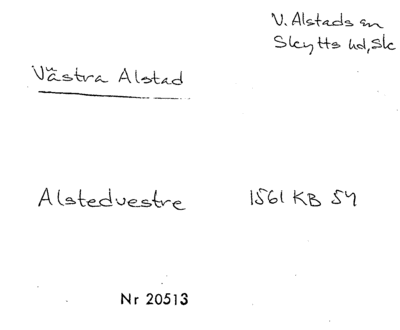 V. Alstads sn
Skytts hd, Sk
Västra Alstad
Alstedvestre 1561 KB 54
Nr 20513